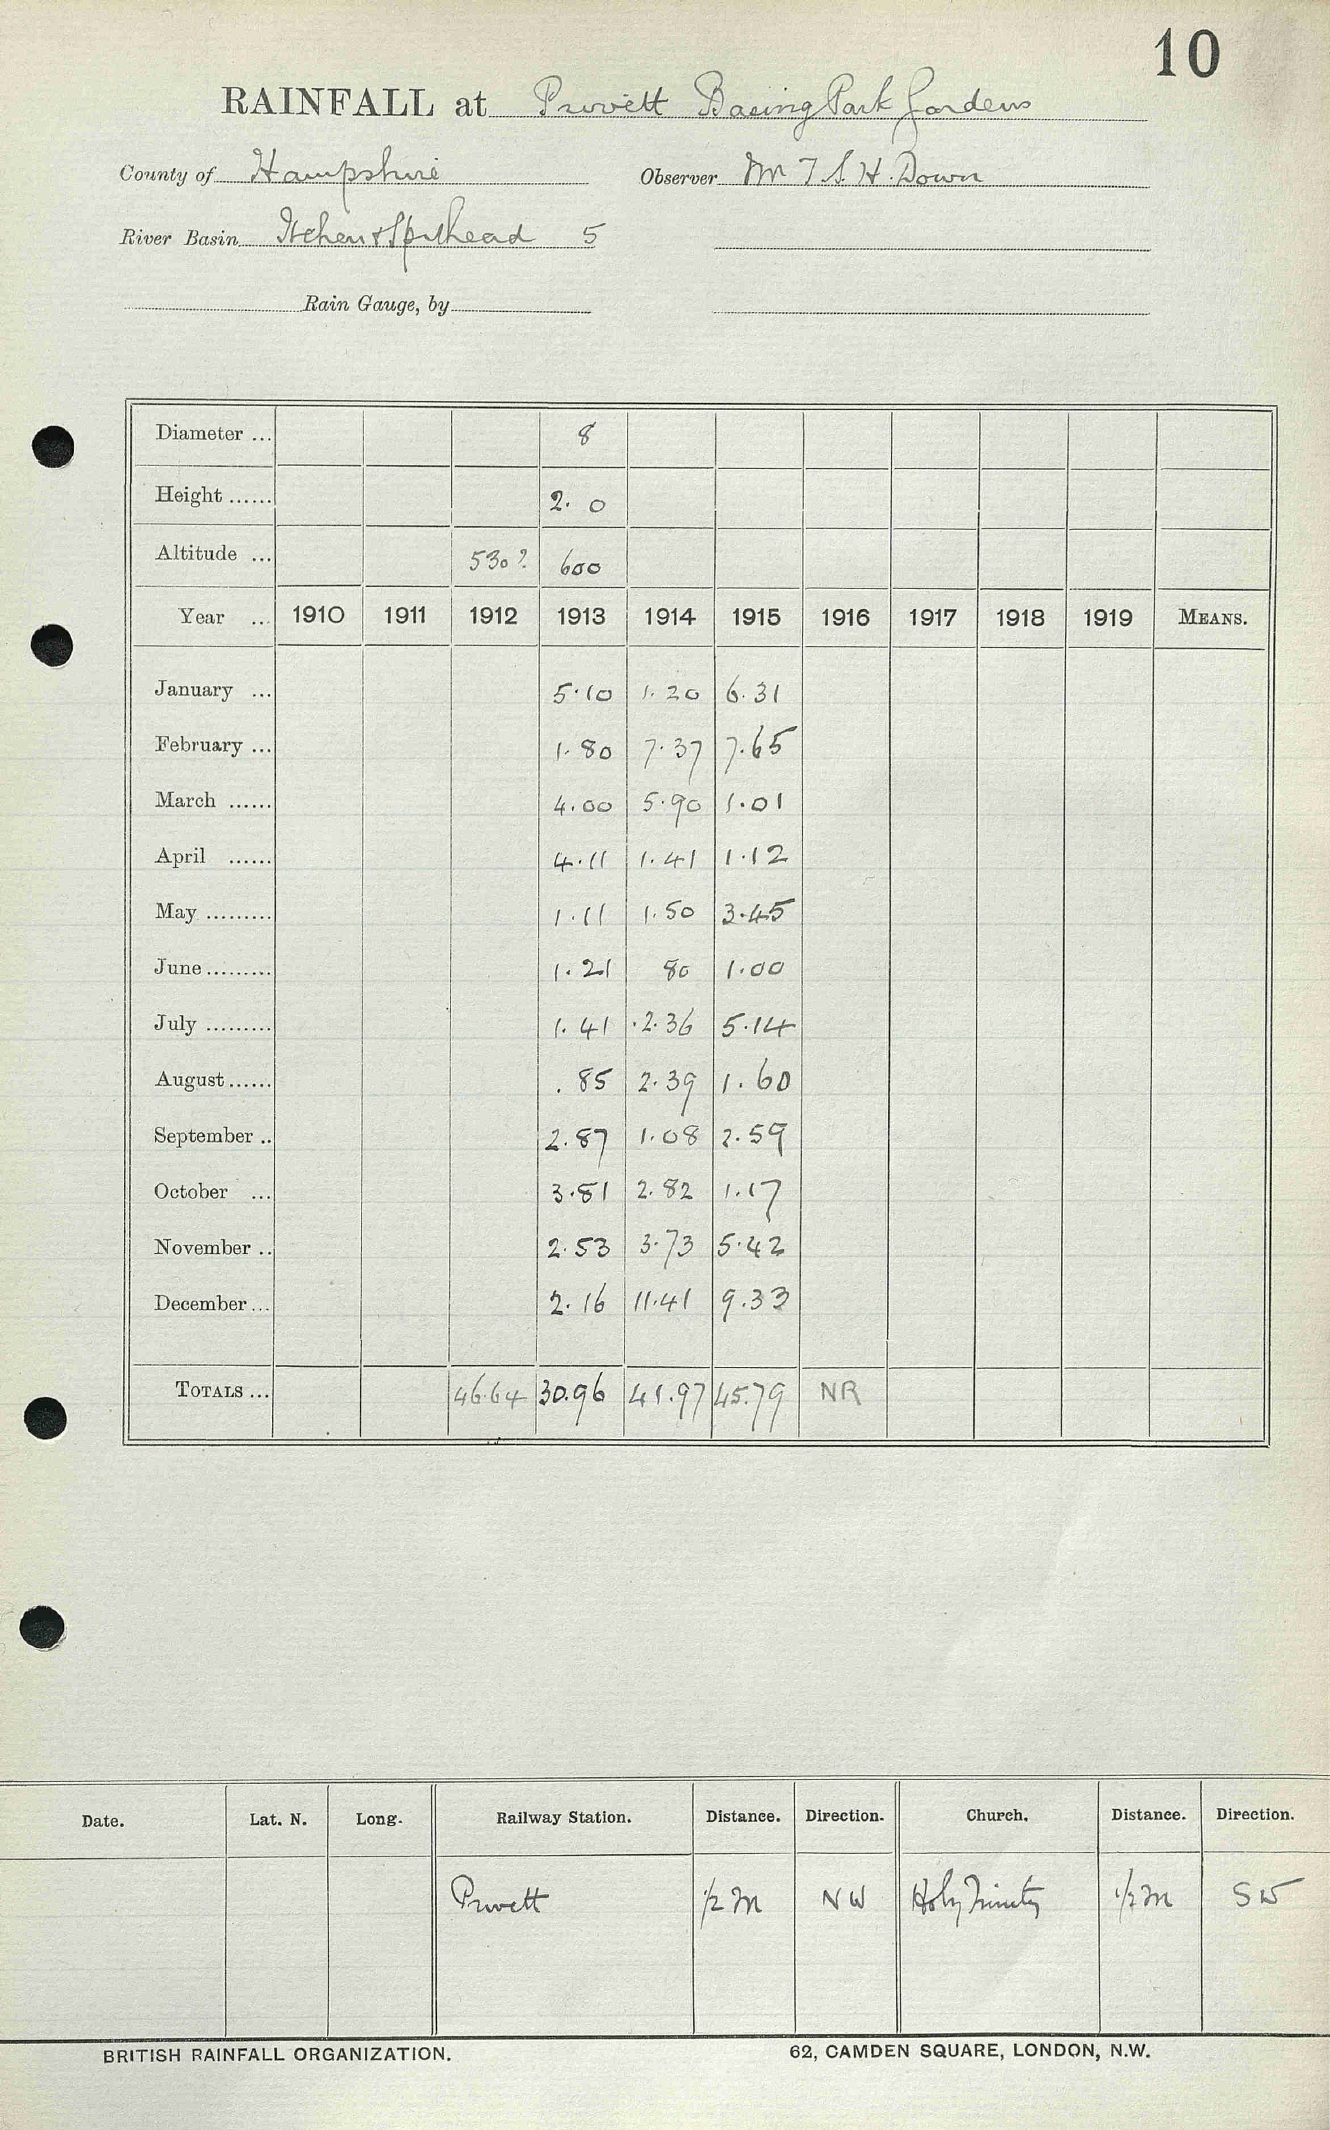 10
RAINFALL at Privett Basing Park Gardens
County of Hampshire Observer Mr T S. H. Down
River Basin Itchen & Spithead 5
Rain Gauge, by
Diameter ... 8
Height ...... 2. 0
Altitude ... 530? 600
Year ... 1910 1911 1912 1913 1914 1915 1916 1917 1918 1919 MEANS.
January ... 5.10 1.20 6.31
February ... 1.80 7.37 7.65
March ...... 4.00 5.90 1.01
April ...... 4.11 1.41 1.12
May ......... 1.11 1.50 3.45
June ......... 1.21 80 1.00
July ......... 1.41 .2.36 5.14
August ...... .85 2.39 1.60
September .. 2.87 1.08 2.59
October ... 3.81 2.82 1.17
November .. 2.53 3.73 5.42
December ... 2.16 11.41 9.33
TOTALS ... 46.64 30.96 41.97 45.79 NR
Date. Lat. N. Long. Railway Station. Distance. Direction. Church. Distance. Direction.
Privett 1/2 m NW Holy Trinity 1/2 m SW
BRITISH RAINFALL ORGANIZATION. 62, CAMDEN SQUARE, LONDON, N.W.